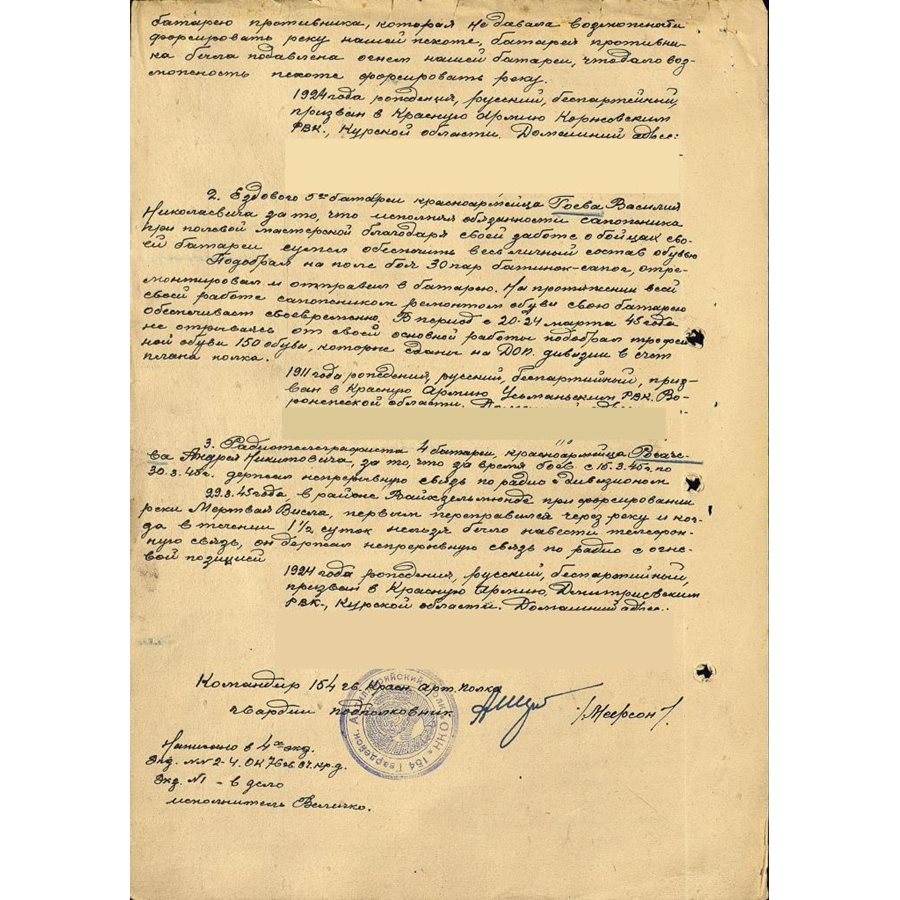 батарею противника, которая не давала возможности
форсировать реку нашей пехоте, батарея противни-
ка была подавлена огнем нашей батареи, что дало воз-
можность пехоте форсировать реку.
1924 года рождения, русский, беспартейный,
призван в Красную Армию
РВК., Курской области. Домашний адрес:
2. Ездового 5ой батареи красноармейца Гоева Василия
Николаевича за то, что исполняя обязанности сапожника
при полевой мастерской благодаря своей заботе о бойцах сво-
ей батареи сумел обеспечить весь личный состав обувью
Подобрал на поле боя 30 пар батинок-сапог, отре-
монтировал и отправил в батарею. На протяжении всей
своей работе сапожником ремонтом обуви свою батарею
обеспечивает своевременно. В период с 20-24 марта 45 года
не отрываясь от своей основной работы подобрал трофей
ной обуви 150 обуви, которые сданы на ДОП. дивизии в счет
плана полка.
1911 года рождения, русский, беспартийный, приз-
ван в Красную Армию Усманьским РВК. Во-
ронежской области.
3. Радиотелеграфиста 4 батареи, красноармейца
ва Андрея Никитовича, за то, что за время боев с 15.3.45г. по
30.3.45г. держал непрерывную связь по радио с дивизионом
29.3.45 года, в районе Вайхзельмюнде при форсировании
реки Мертвая Висла, первым переправился через реку и ког-
да в течении 1½ суток нельзя было навести телефон-
ную связь, он держал непрерывную связь по радио с огне-
вой позицией
1924 года рождения, русский, беспартийный,
призван в Красную Армию Дмитриевским
РВК., Курской области. Домашний адрес:
Командир 154 гв. Красн. Арт. полка
гвардии подполковник /Меерсон/
Написано в 4ех экз.
Экз. №1 - в дело
исполнитель Величко.